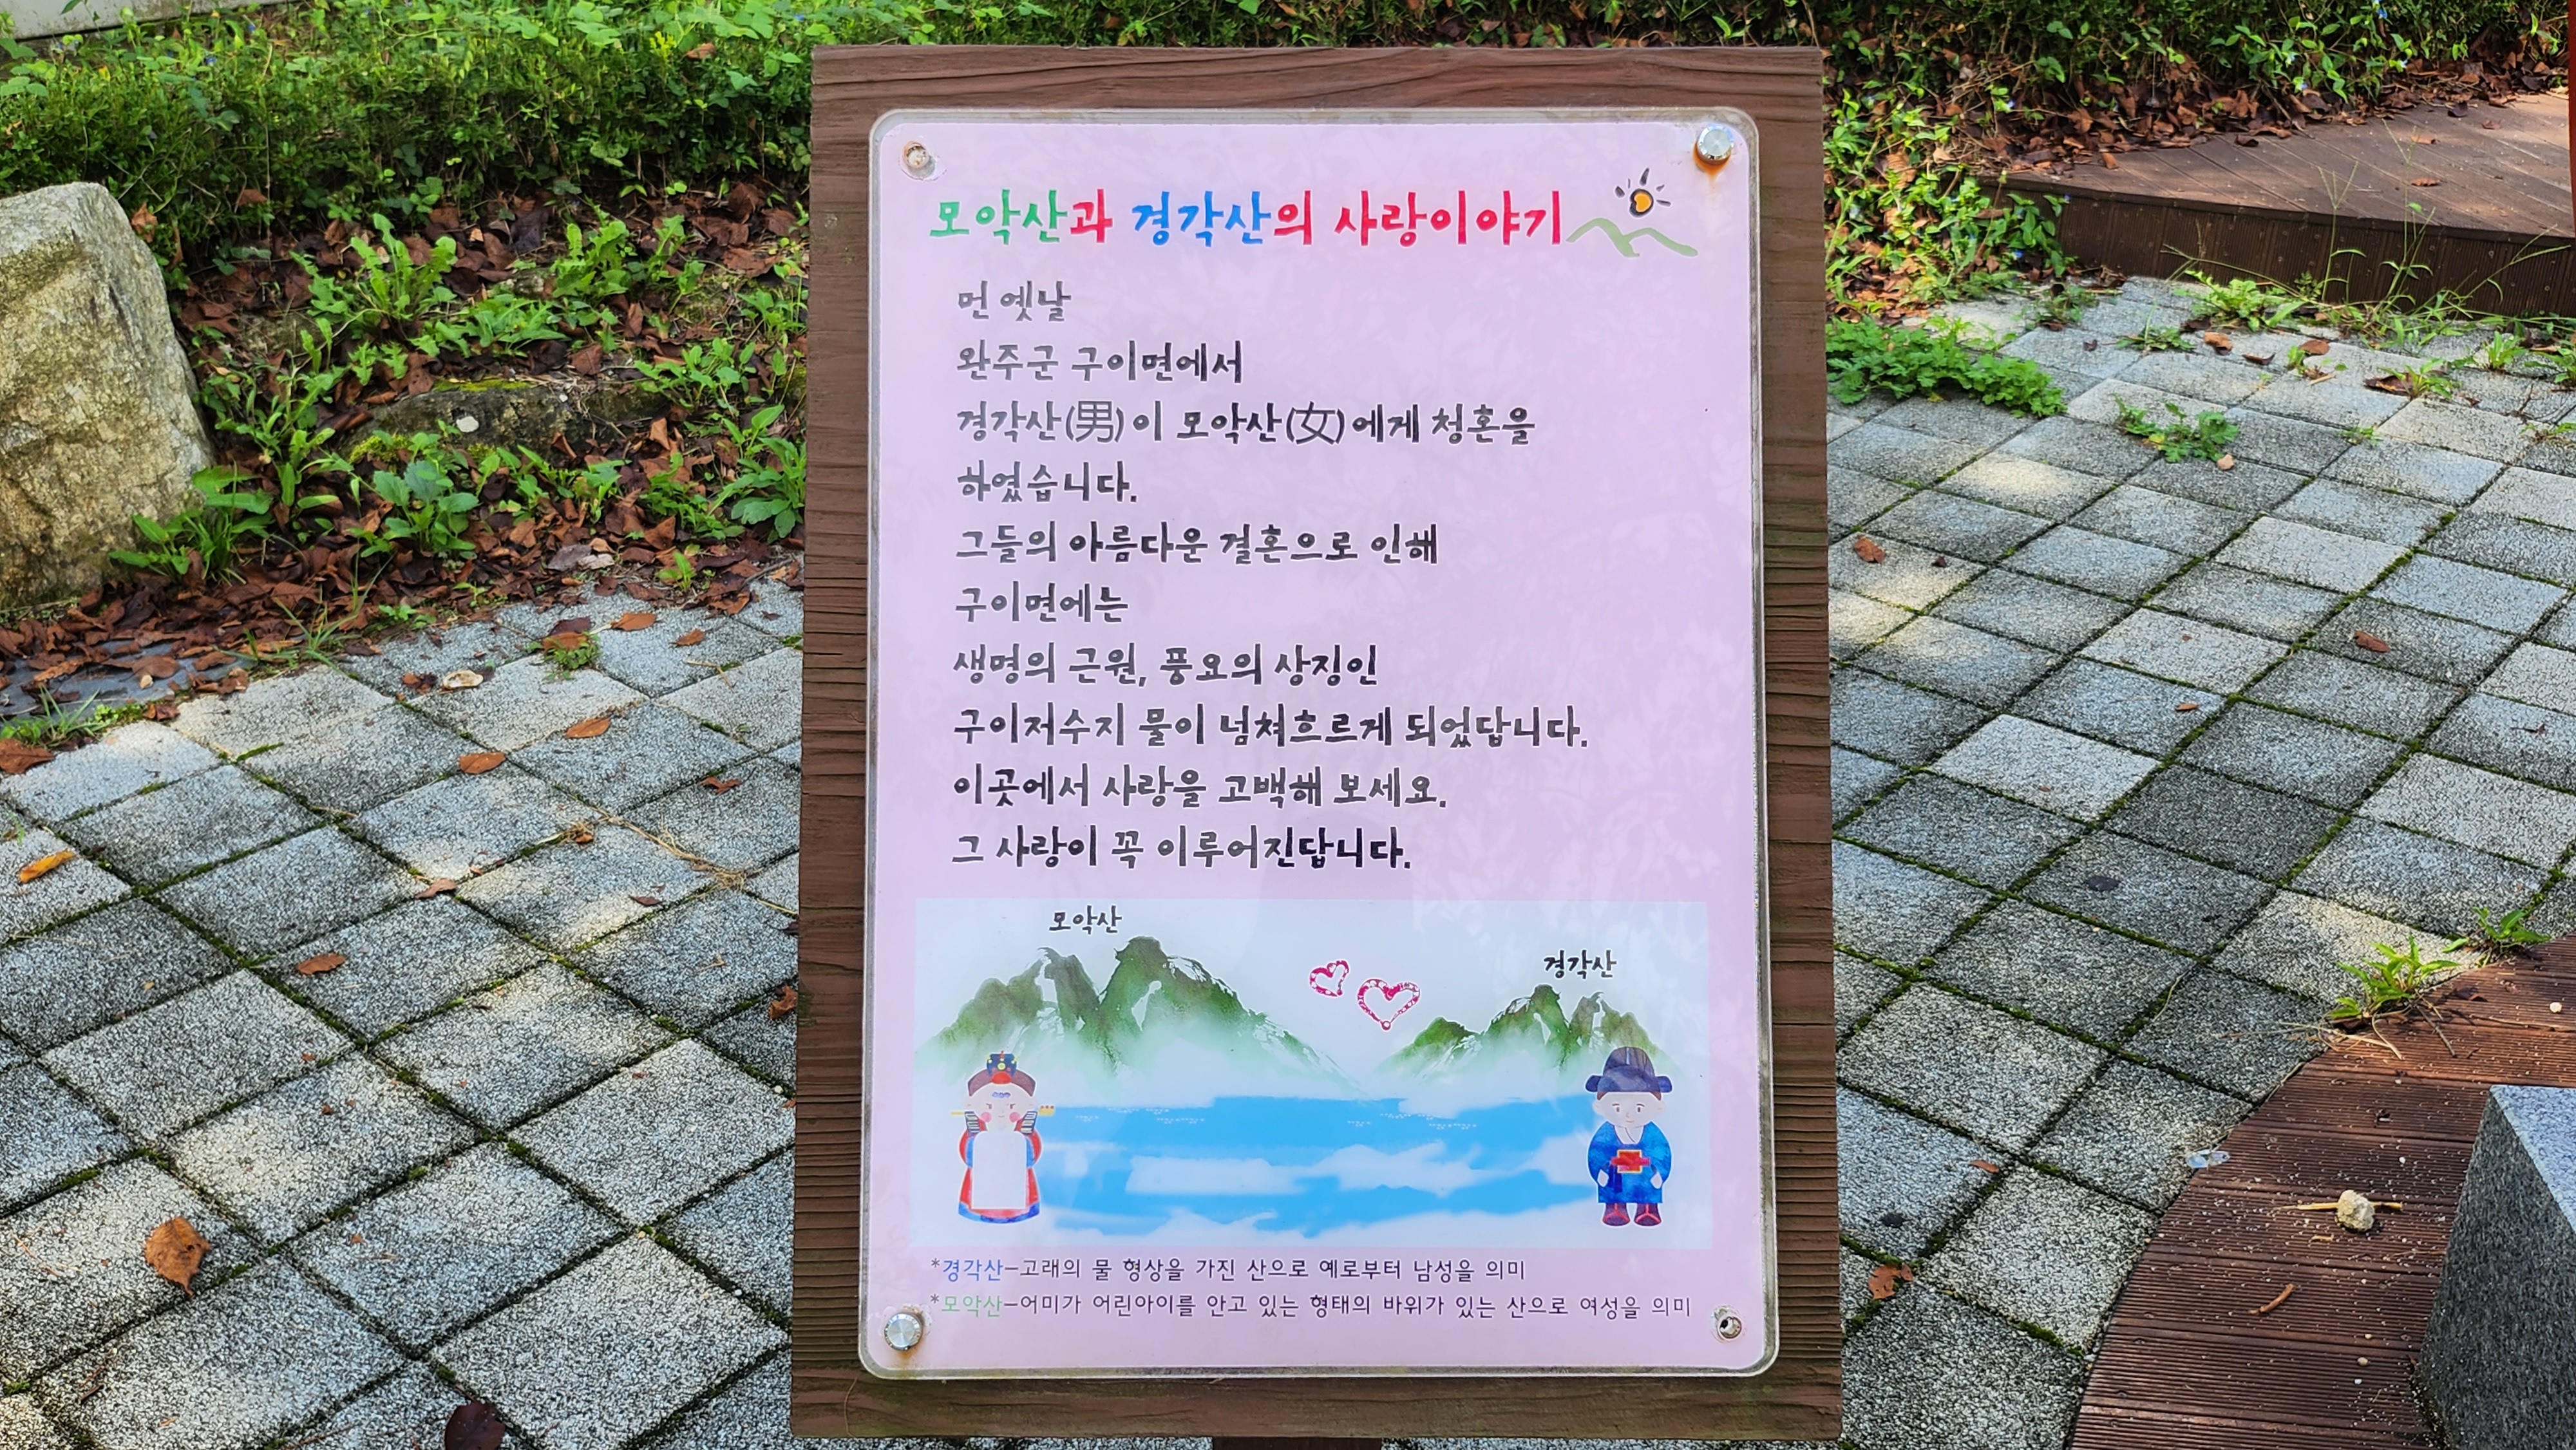 모악산과 경각산의 사랑이야기
먼 옛날
완주군 구이면에서
경각산(男)이 모악산(女)에게 청혼을
하였습니다.
그들의 아름다운 결혼으로 인해
구이면에는
생명의 근원, 풍요의 상징인
구이저수지 물이 넘쳐흐르게 되었답니다.
이곳에서 사랑을 고백해 보세요.
그 사랑이 꼭 이루어진답니다.
모악산
경각산
*경각산-고래의 물 형상을 가진 산으로 예로부터 남성을 의미
*모악산-어미가 어린아이를 안고 있는 형태의 바위가 있는 산으로 여성을 의미